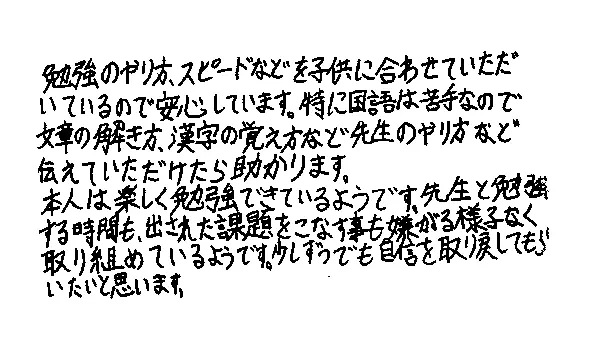 勉強のやり方、スピードなどを子供に合わせていただ
いているので安心しています。特に国語は苦手なので
文章の解き方、漢字の覚え方など先生のやり方など
伝えていただけたら助かります。
本人は楽しく勉強できているようです。先生と勉強
する時間も、出された課題をこなす事も嫌がる様子なく
取り組めているようです。少しずつでも自信を取り戻してもら
いたいと思います。